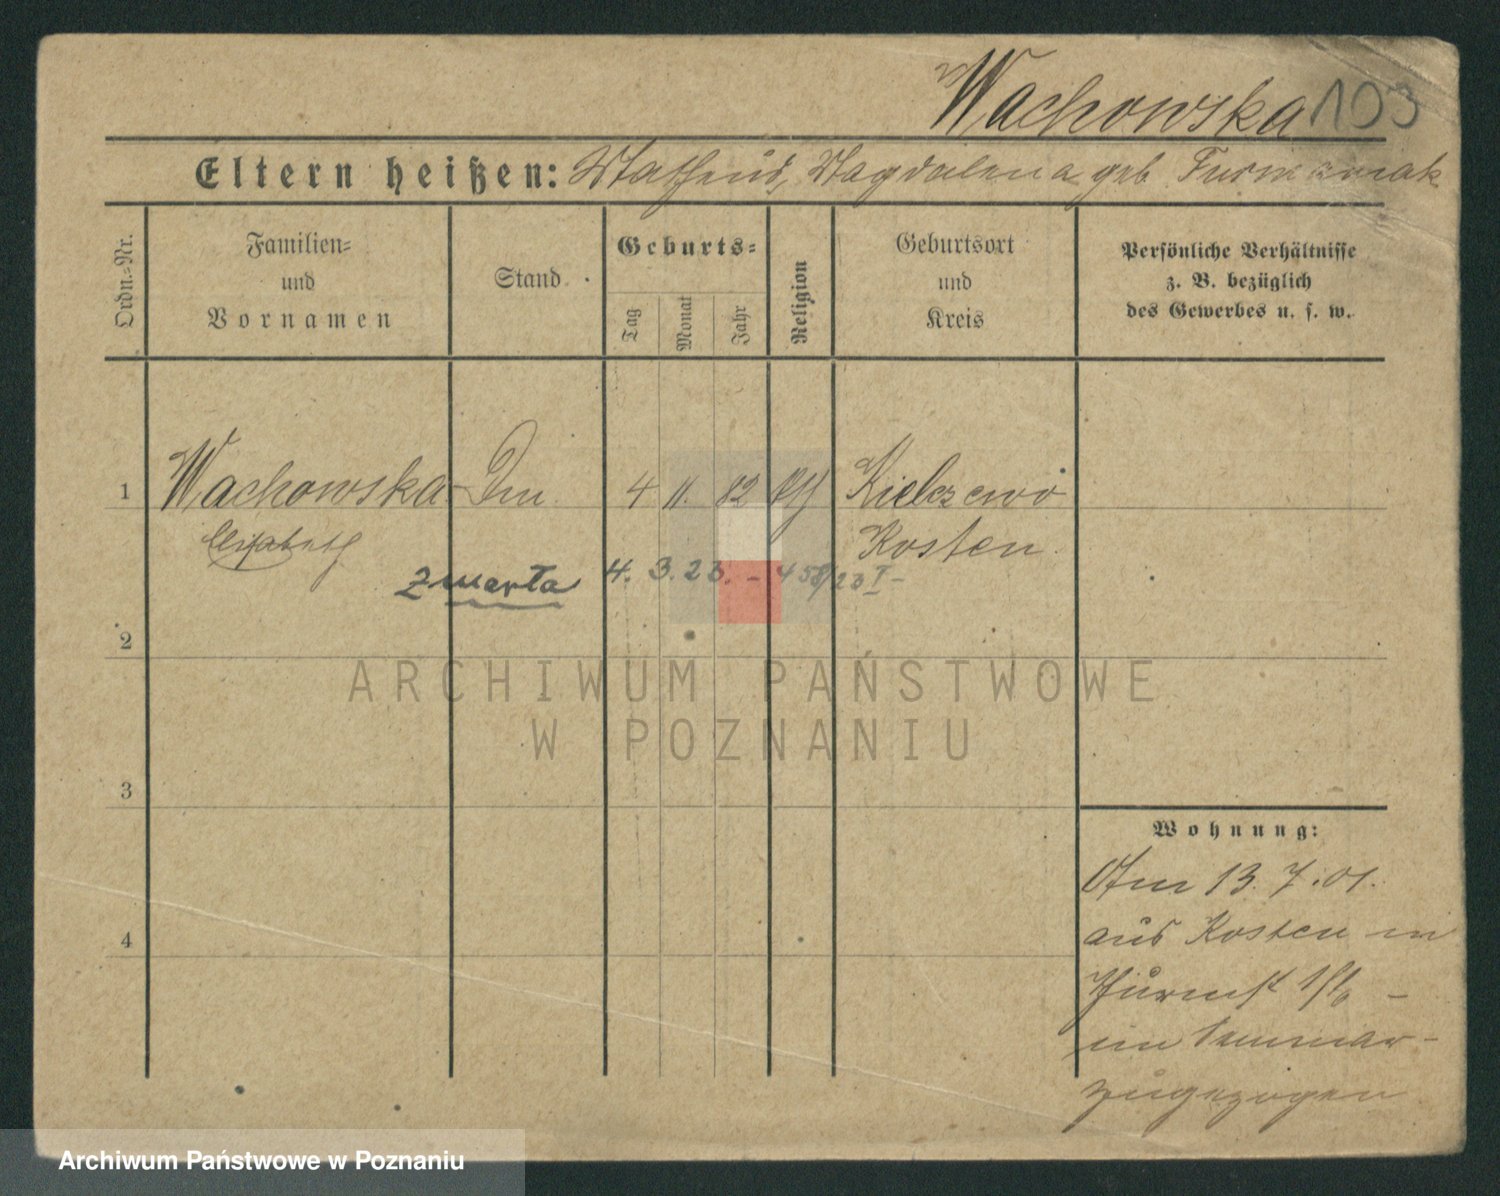 Wachowska 103
Eltern heißen: Mathäus, Magdalena geb. Furmaniak
Ordn.-Nr.
Familien-
und
Vornamen
Stand
Geburts-
Tag
Monat
Jahr
Religion
Geburtsort
und
Kreis
Persönliche Verhältnisse
z. B. bezüglich
des Gewerbes u. s. w.
1 Wachowska 4 11. 82 Kielczewo
Elisabeth Kosten
zmarła 4. 3. 23. - 458/23 I -
2
ARCHIWUM PAŃSTWOWE
W POZNANIU
3
Wohnung:
Am 13. 7. 01.
aus Kosten in
4
im Seminar
zugezogen
Archiwum Państwowe w Poznaniu